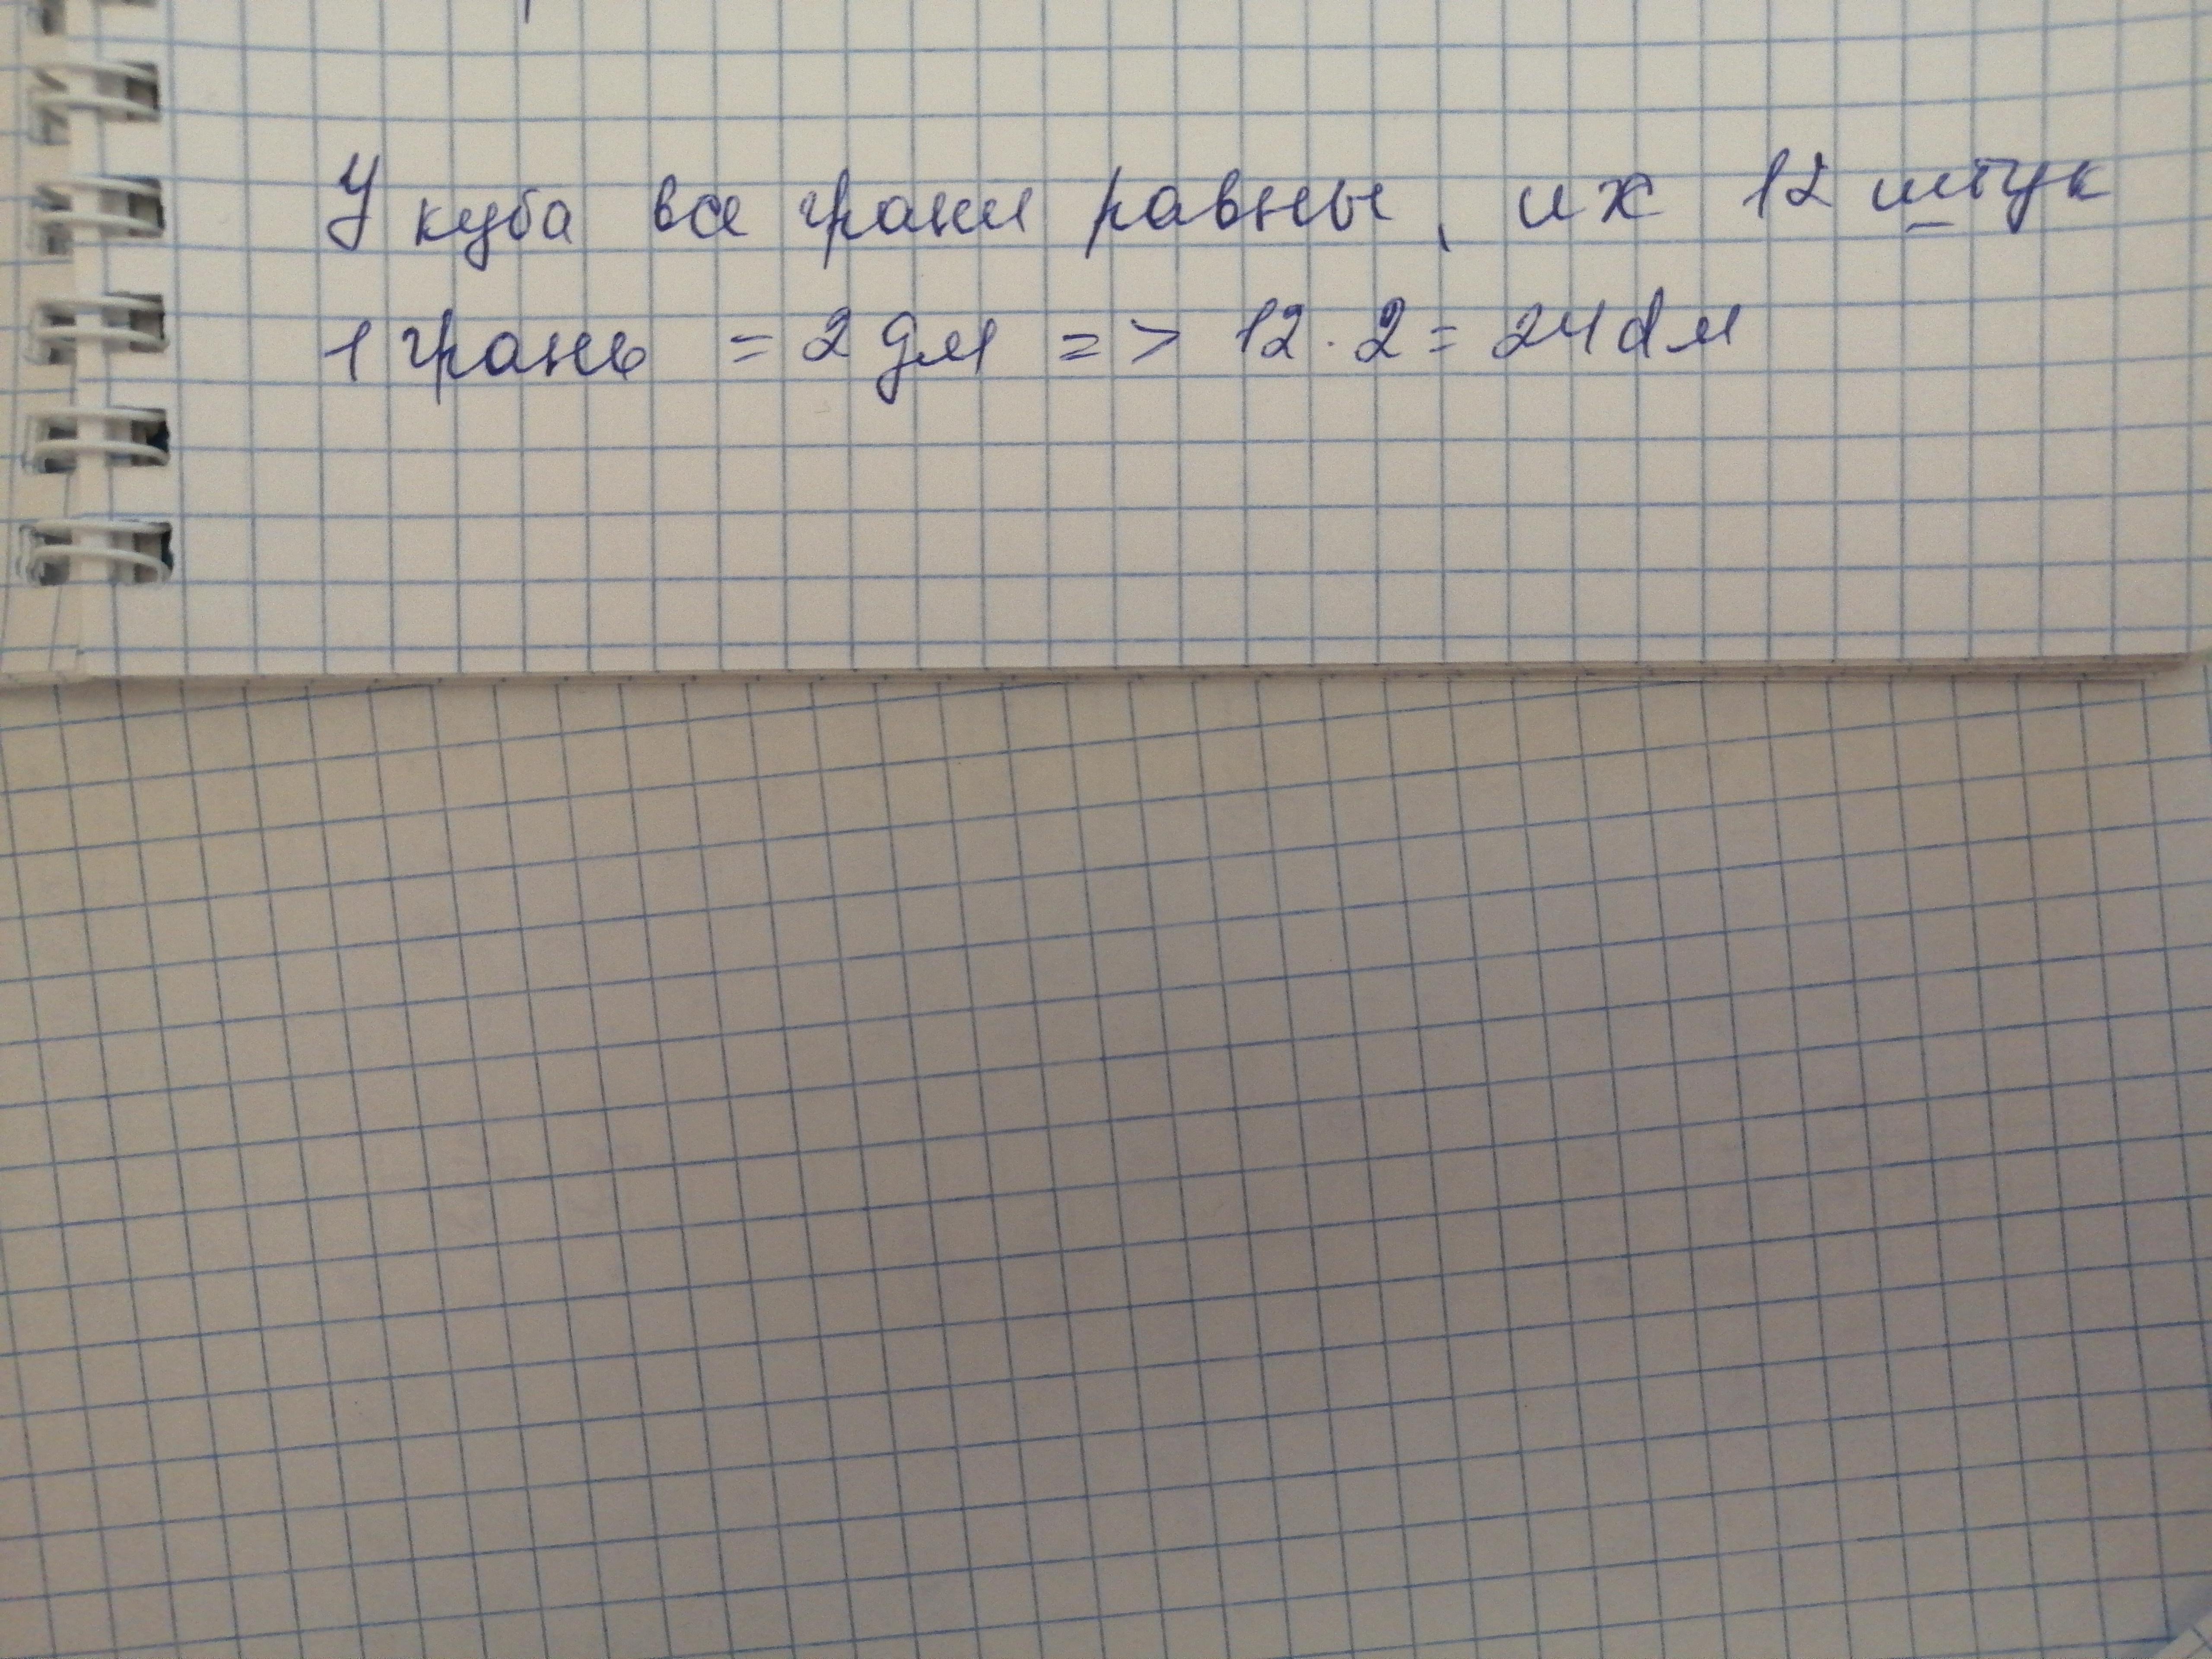 У куба все грани равны, их 12 штук
1 грань = 2 дм => 12 · 2 = 24 дм